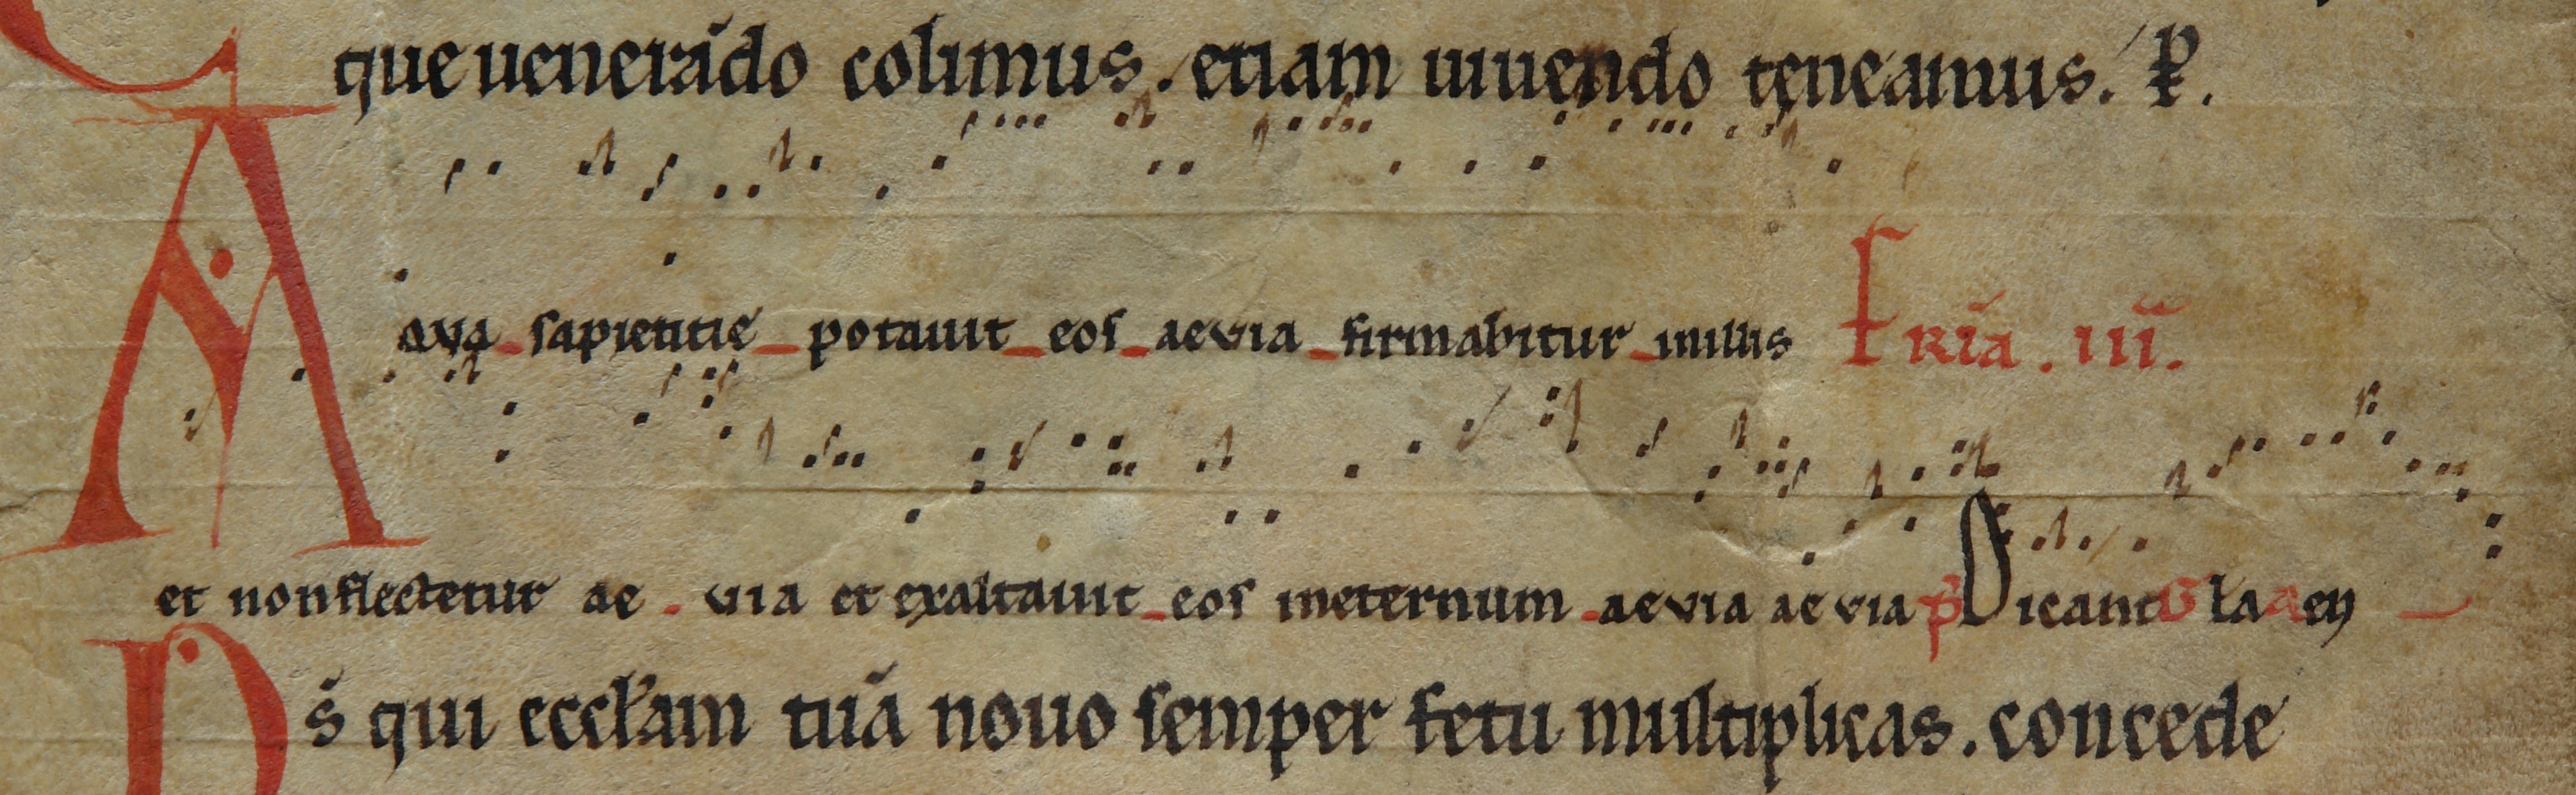 que uenerādo colimus. etiam uiuendo teneamus. P.
Aqua sapientie potauit eos aeuia firmabitur inillis Fr̄ia. III.
et non flectetur ae uia et exaltauit eos ineternum aeuia aeuia p̄ Dicant G la a en
Ds̄ qui eccłam tuā nouo semper fetu multiplicas. concede